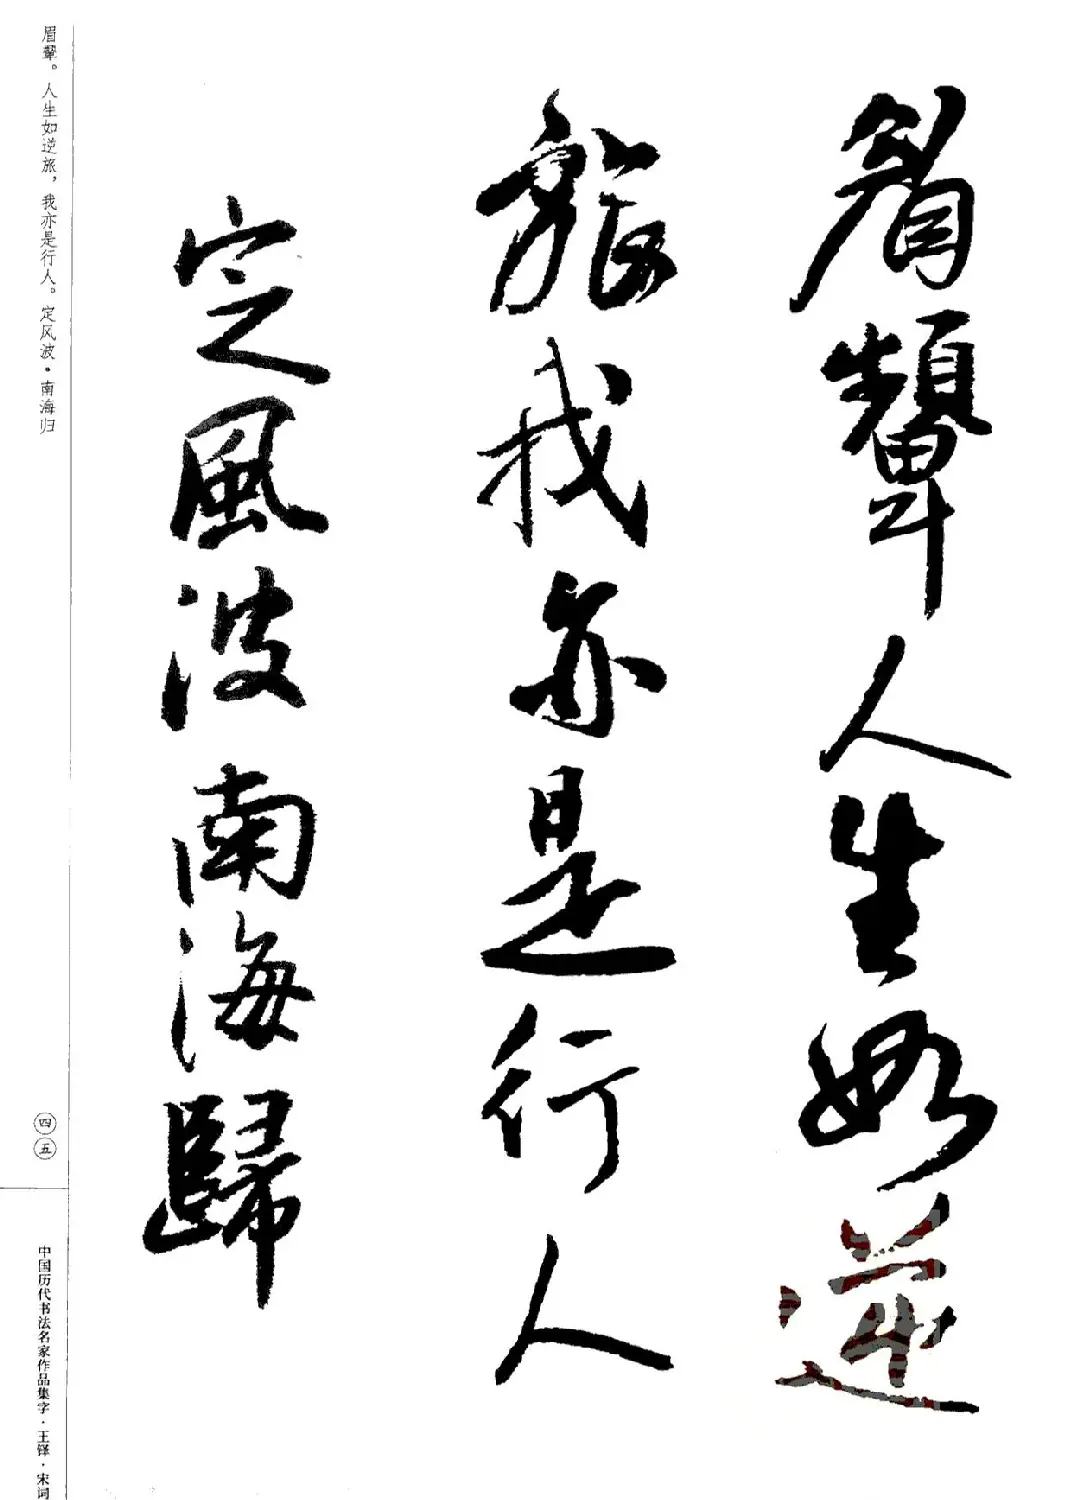 眉顰人生如逆
旅我亦是行人
定風波南海歸
眉颦。人生如逆旅，我亦是行人。定风波·南海归
四五
中国历代书法名家作品集字·王铎·宋词